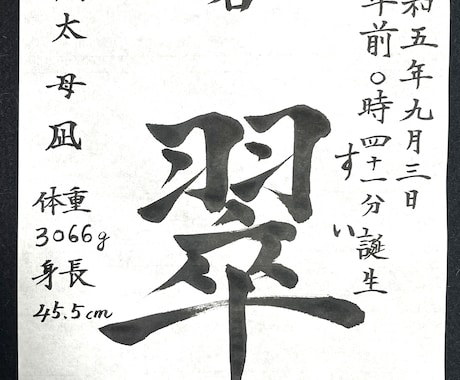 和五年九月三日
午前〇時四十一分誕生
名
すい
翠
太 母 凪
体重
3066g
身長
45.5cm